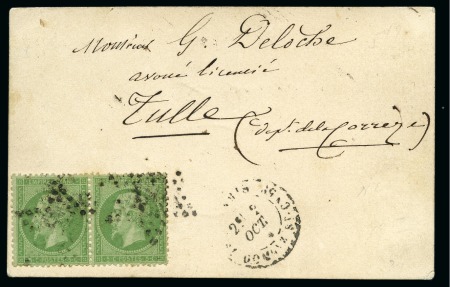 Monsieur G. Deloche
avoué licencié
Tulle
(dépt. de la Correze)
OCT.